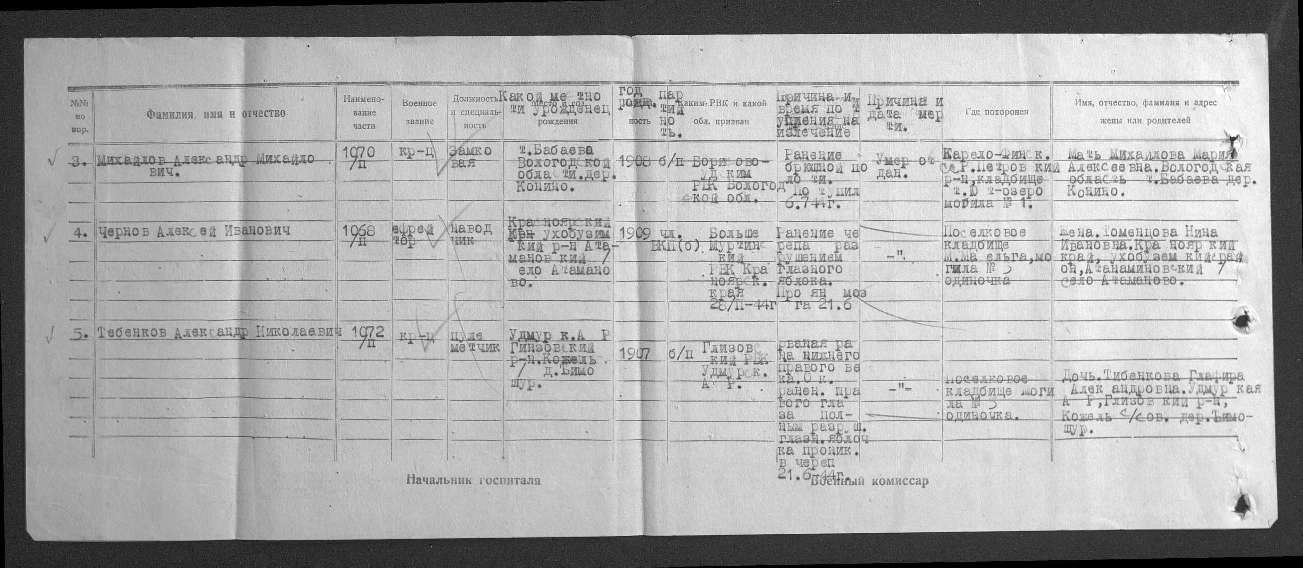 №№ по пор.
Фамилия, имя и отчество
Наимено-
вание
части
Военное
звание
Должность
и специаль-
ность
Какой ме тно
ти урожденец
рождения
год
рожд.
пар
тий
но
ть.
Каким РВК и какой
обл. призван
Причина и
время по т
упления на
излечение
Причина и
дата  мер
ти.
Где похоронен
Имя, отчество, фамилия и адрес
жены или родителей
3. Михайлов Александр Михайло
вич.
1070
/п
кр-ц
Замко
вая
т.Бабаева
Вологодской
обла ти.дер.
Конино.
1908
б/п
Бори ово-
д ким
РВК Вологод
ской обл.
Ранение
брюшной по
ло ти.
По тупил
6.744г.
Умер от
дан.
Карело-Фин к.
Р.Петров кий
р-н,кладбище
т.Ю т-озеро
могила № 1.
Мать Михайлова Мария
Алексеевна.Вологодская
область  т.Бабаева дер.
Конино.
4. Чернов Алексей Иванович
1068
/п
ефрей
тор
Навод
чик
Красноярский
ухобузим
кий р-н Ата-
манов кий /
ело Атамано
во.
1909
чл.
ВКП(б)
Больше
Муртин
кий
РВК Кра
ноярск.
края
28/П-44г
Ранение че
репа  раз
рушением
глазного
яблока.
Про ян  моз
га 21.6
-".
Поселковое
кладбище
М.Ма ельга,мо
гила № 5
одиночка
жена.Поменцова Нина
Ивановна.Кра нояр кий
край, ухобузем кий рай
он,Атанаминовский /
село Атаманово.
5. Тебенков Александр Николаевич
1072
/п
кр-ц
пуле
метчик
Удмур к.А  Р
Глизовский
р-н.Кожель
/ д.Бимо
шур.
1907
б/п
Глизов
кий РВК
Удмурск.
А  Р.
рваная ра
на нижнего
правого ве
ка.О к.
ранен. пра
вого гла
за  пол-
ным разруш.
глазн.яблоч
ка проник.
в череп
21.6-44г.
-"-
Поселковое
кладбище моги
ла № 5
одиночка.
Дочь.Тибенкова Глафира
Алек андровна.Удмур кая
А  Р,Глизов кий р-н,
Кожель с/сов. дер.Бимо-
шур.
Начальник госпиталя
Военный комиссар